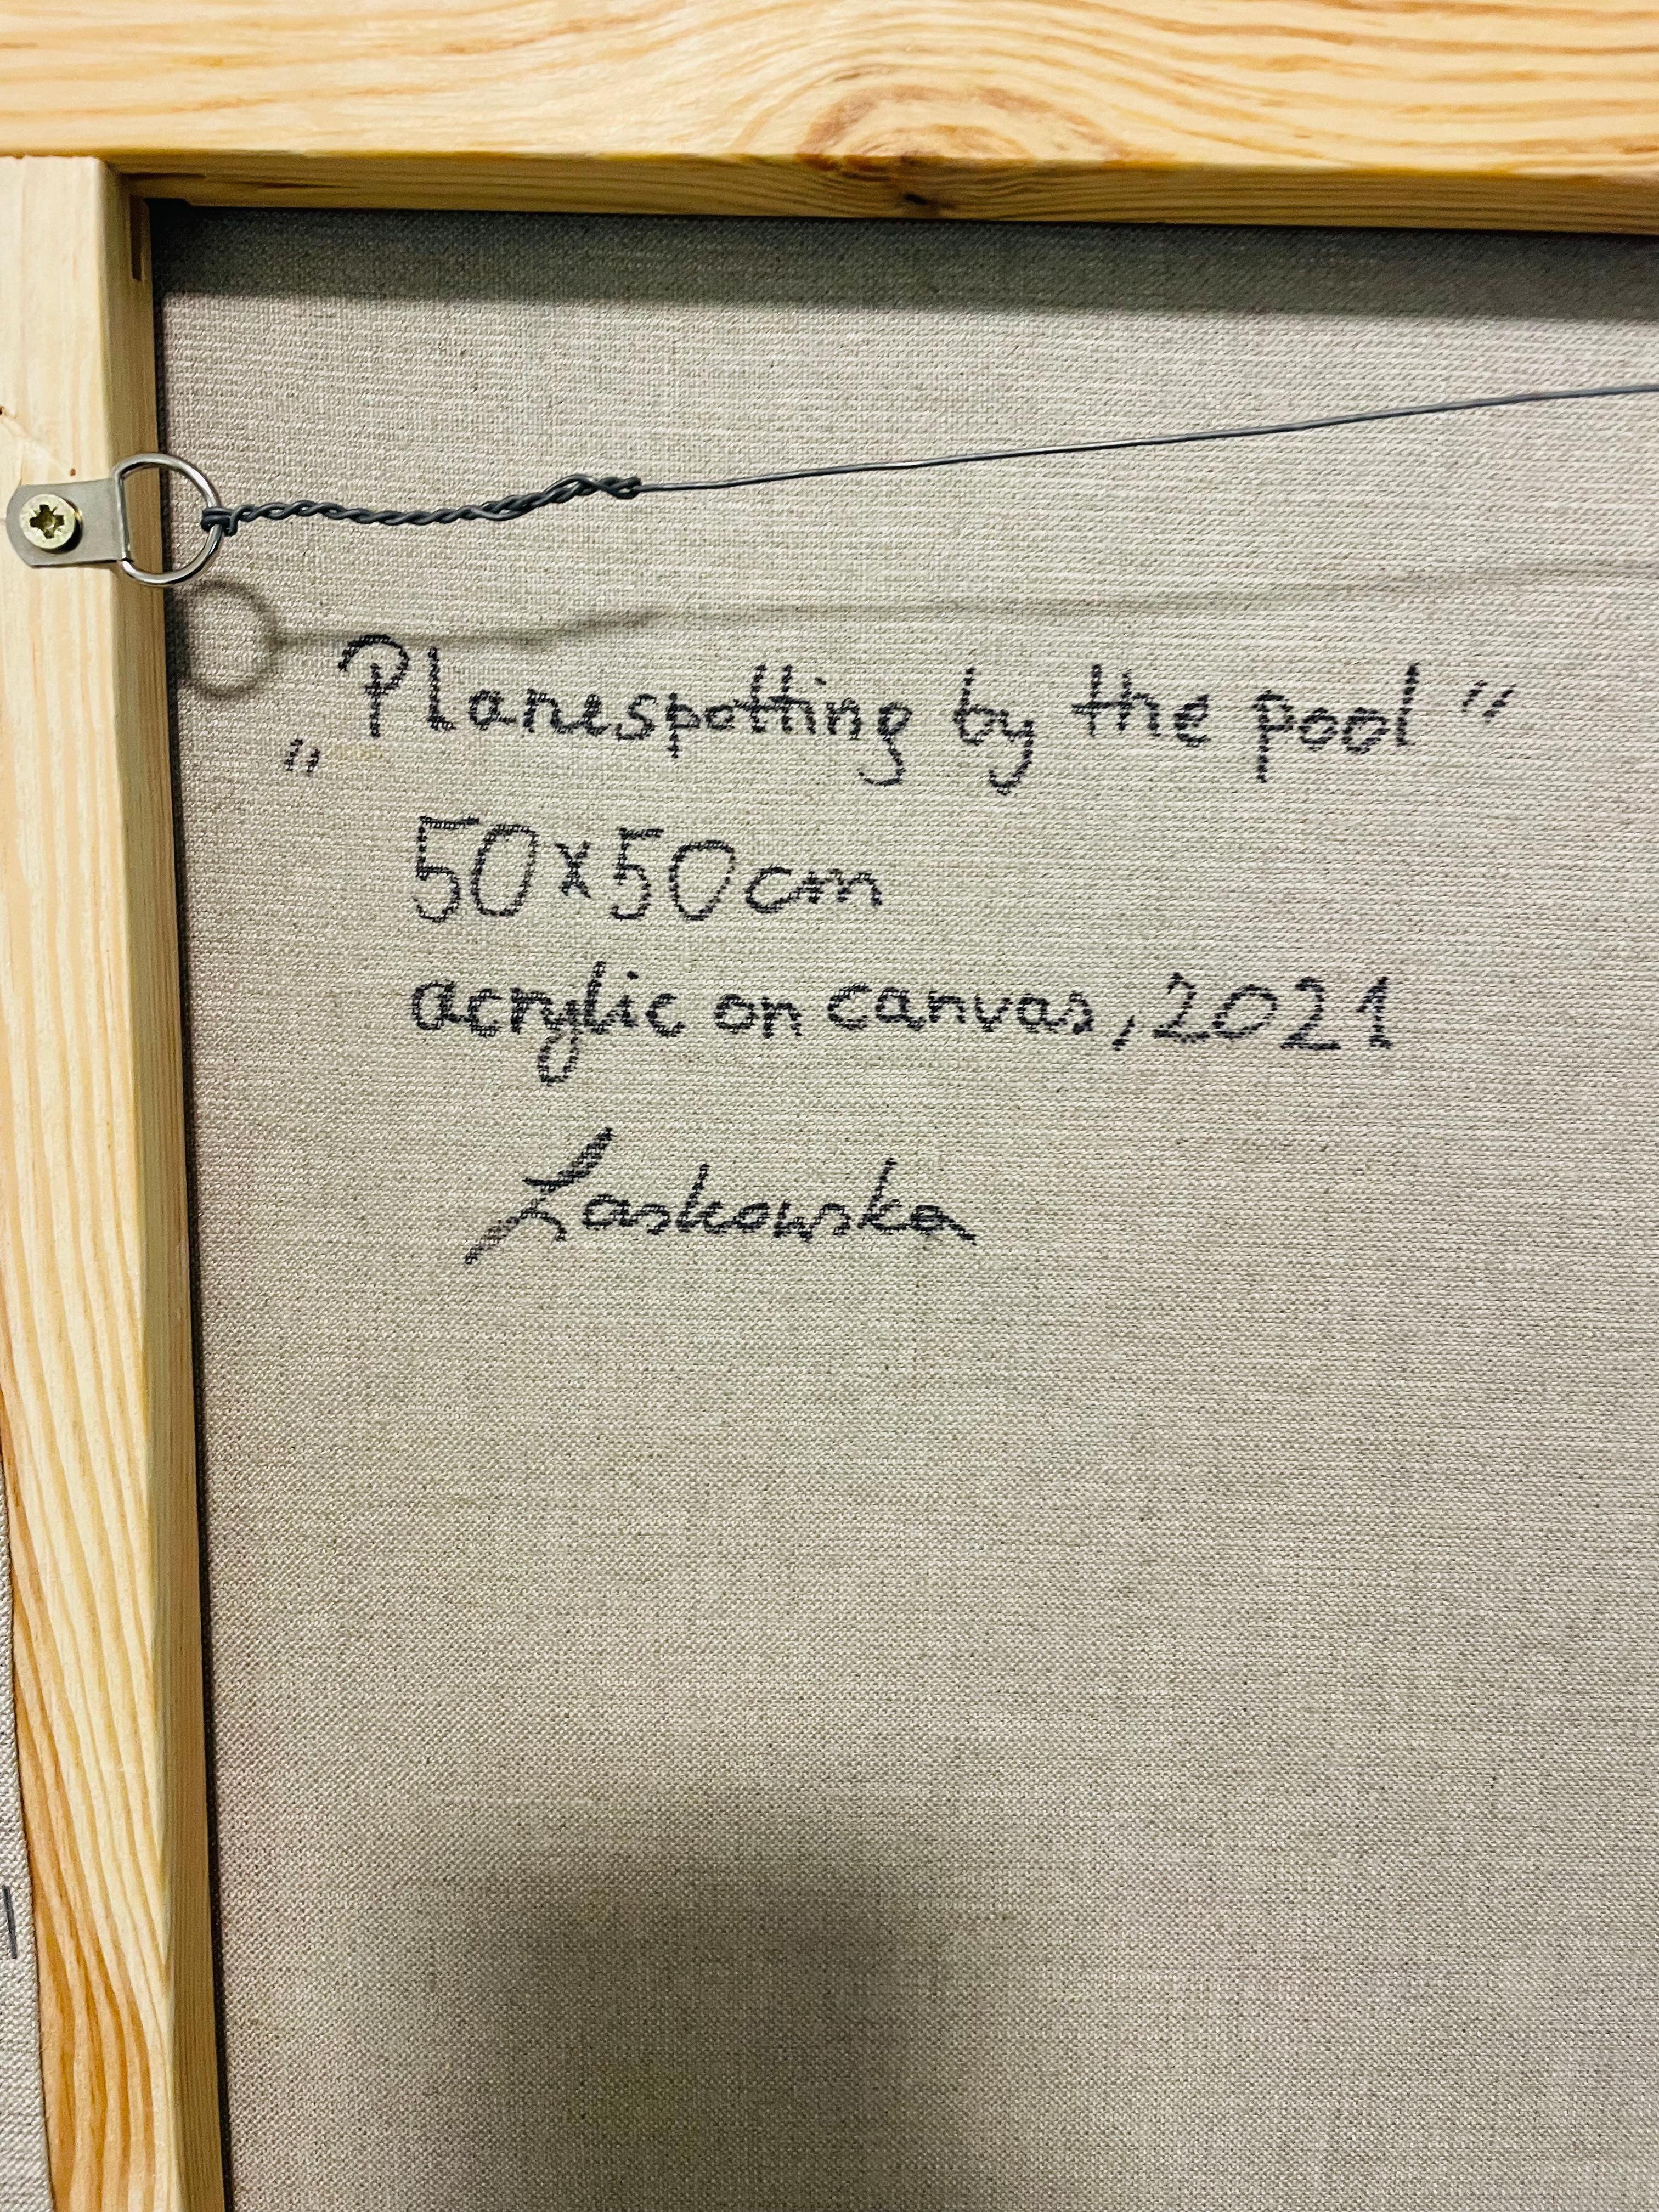 „Planespotting by the pool”
50x50cm
acrylic on canvas, 2021
Laskowska